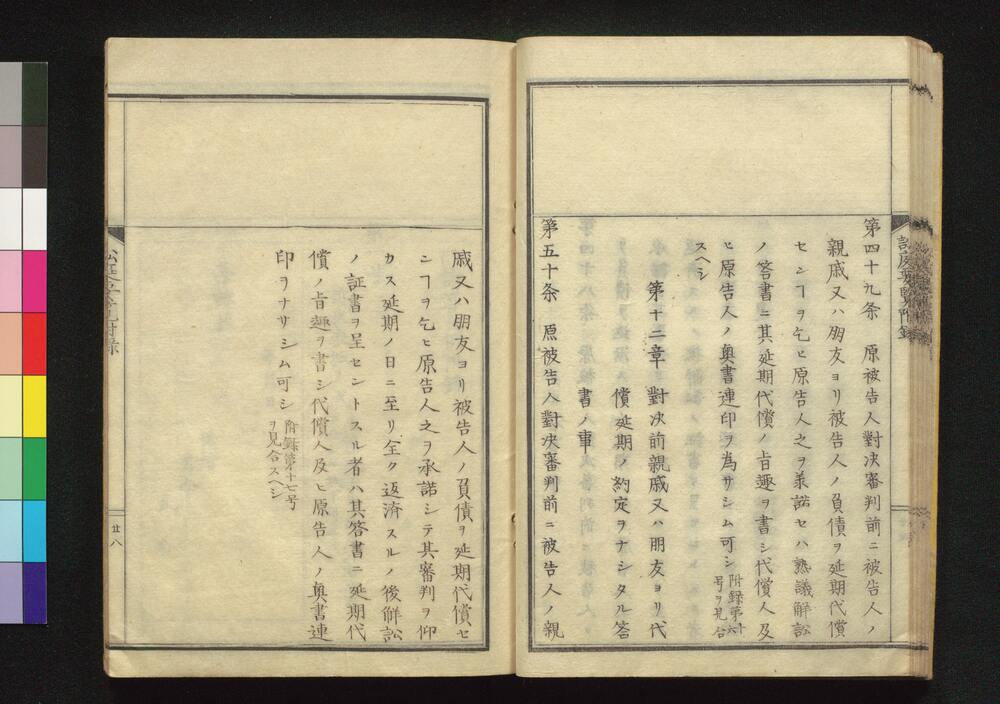 第四十九条 原被告人對决審判前ニ被告人ノ
親戚又ハ朋友ヨリ被告人ノ負債ヲ延期代償
センヿヲ乞ヒ原告人之ヲ承諾セハ熟議解訟
ノ答書ニ其延期代償ノ旨趣ヲ書シ代償人及
ヒ原告人ノ奥書連印ヲ為サシム可シ附録第十六
号ヲ見合
スヘシ
第十二章 對决前親戚又ハ朋友ヨリ代
償延期ノ約定ヲナシタル答
書ノ事
第五十条 原被告人對决審判前ニ被告人ノ親
戚又ハ朋友ヨリ被告人ノ負債ヲ延期代償セ
ンヿヲ乞ヒ原告人之ヲ承諾シテ其審判ヲ仰
カス延期ノ日ニ至リ全ク返済スルノ後解訟
ノ証書ヲ呈セントスル者ハ其答書ニ延期代
償ノ旨趣ヲ書シ代償人及ヒ原告人ノ奥書連
印ヲナサシム可シ附録第十七号
ヲ見合スヘシ
廿八